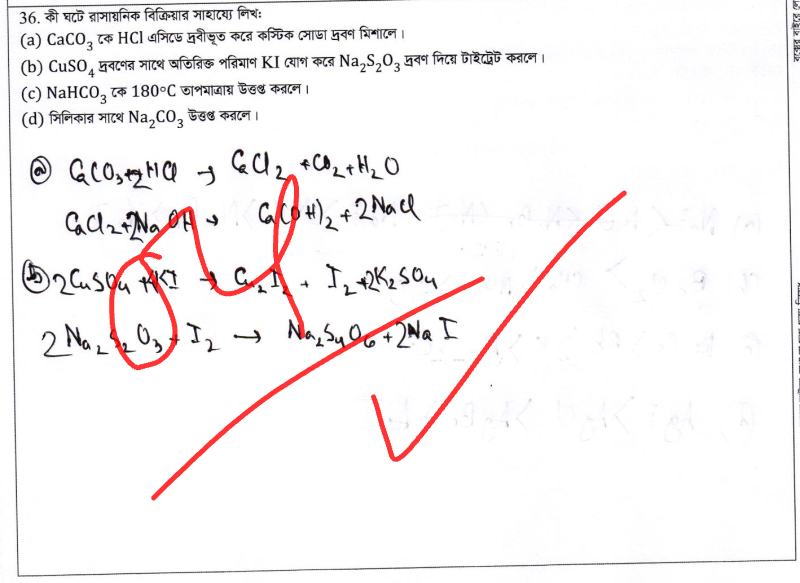 36. কী ঘটে রাসায়নিক বিক্রিয়ার সাহায্যে লিখ:
(a) CaCO₃ কে HCl এসিডে দ্রবীভূত করে কস্টিক সোডা দ্রবণ মিশালে।
(b) CuSO₄ দ্রবণের সাথে অতিরিক্ত পরিমাণ KI যোগ করে Na₂S₂O₃ দ্রবণ দিয়ে টাইট্রেট করলে।
(c) NaHCO₃ কে 180°C তাপমাত্রায় উত্তপ্ত করলে।
(d) সিলিকার সাথে Na₂CO₃ উত্তপ্ত করলে।
ⓐ CaCO₃+2HCl → CaCl₂ +CO₂+H₂O
CaCl₂+2NaOH → Ca(OH)₂+2NaCl
ⓑ 2CuSO₄ +4KI → Cu₂I₂ + I₂+2K₂SO₄
2Na₂S₂O₃ + I₂ → Na₂S₄O₆+2NaI